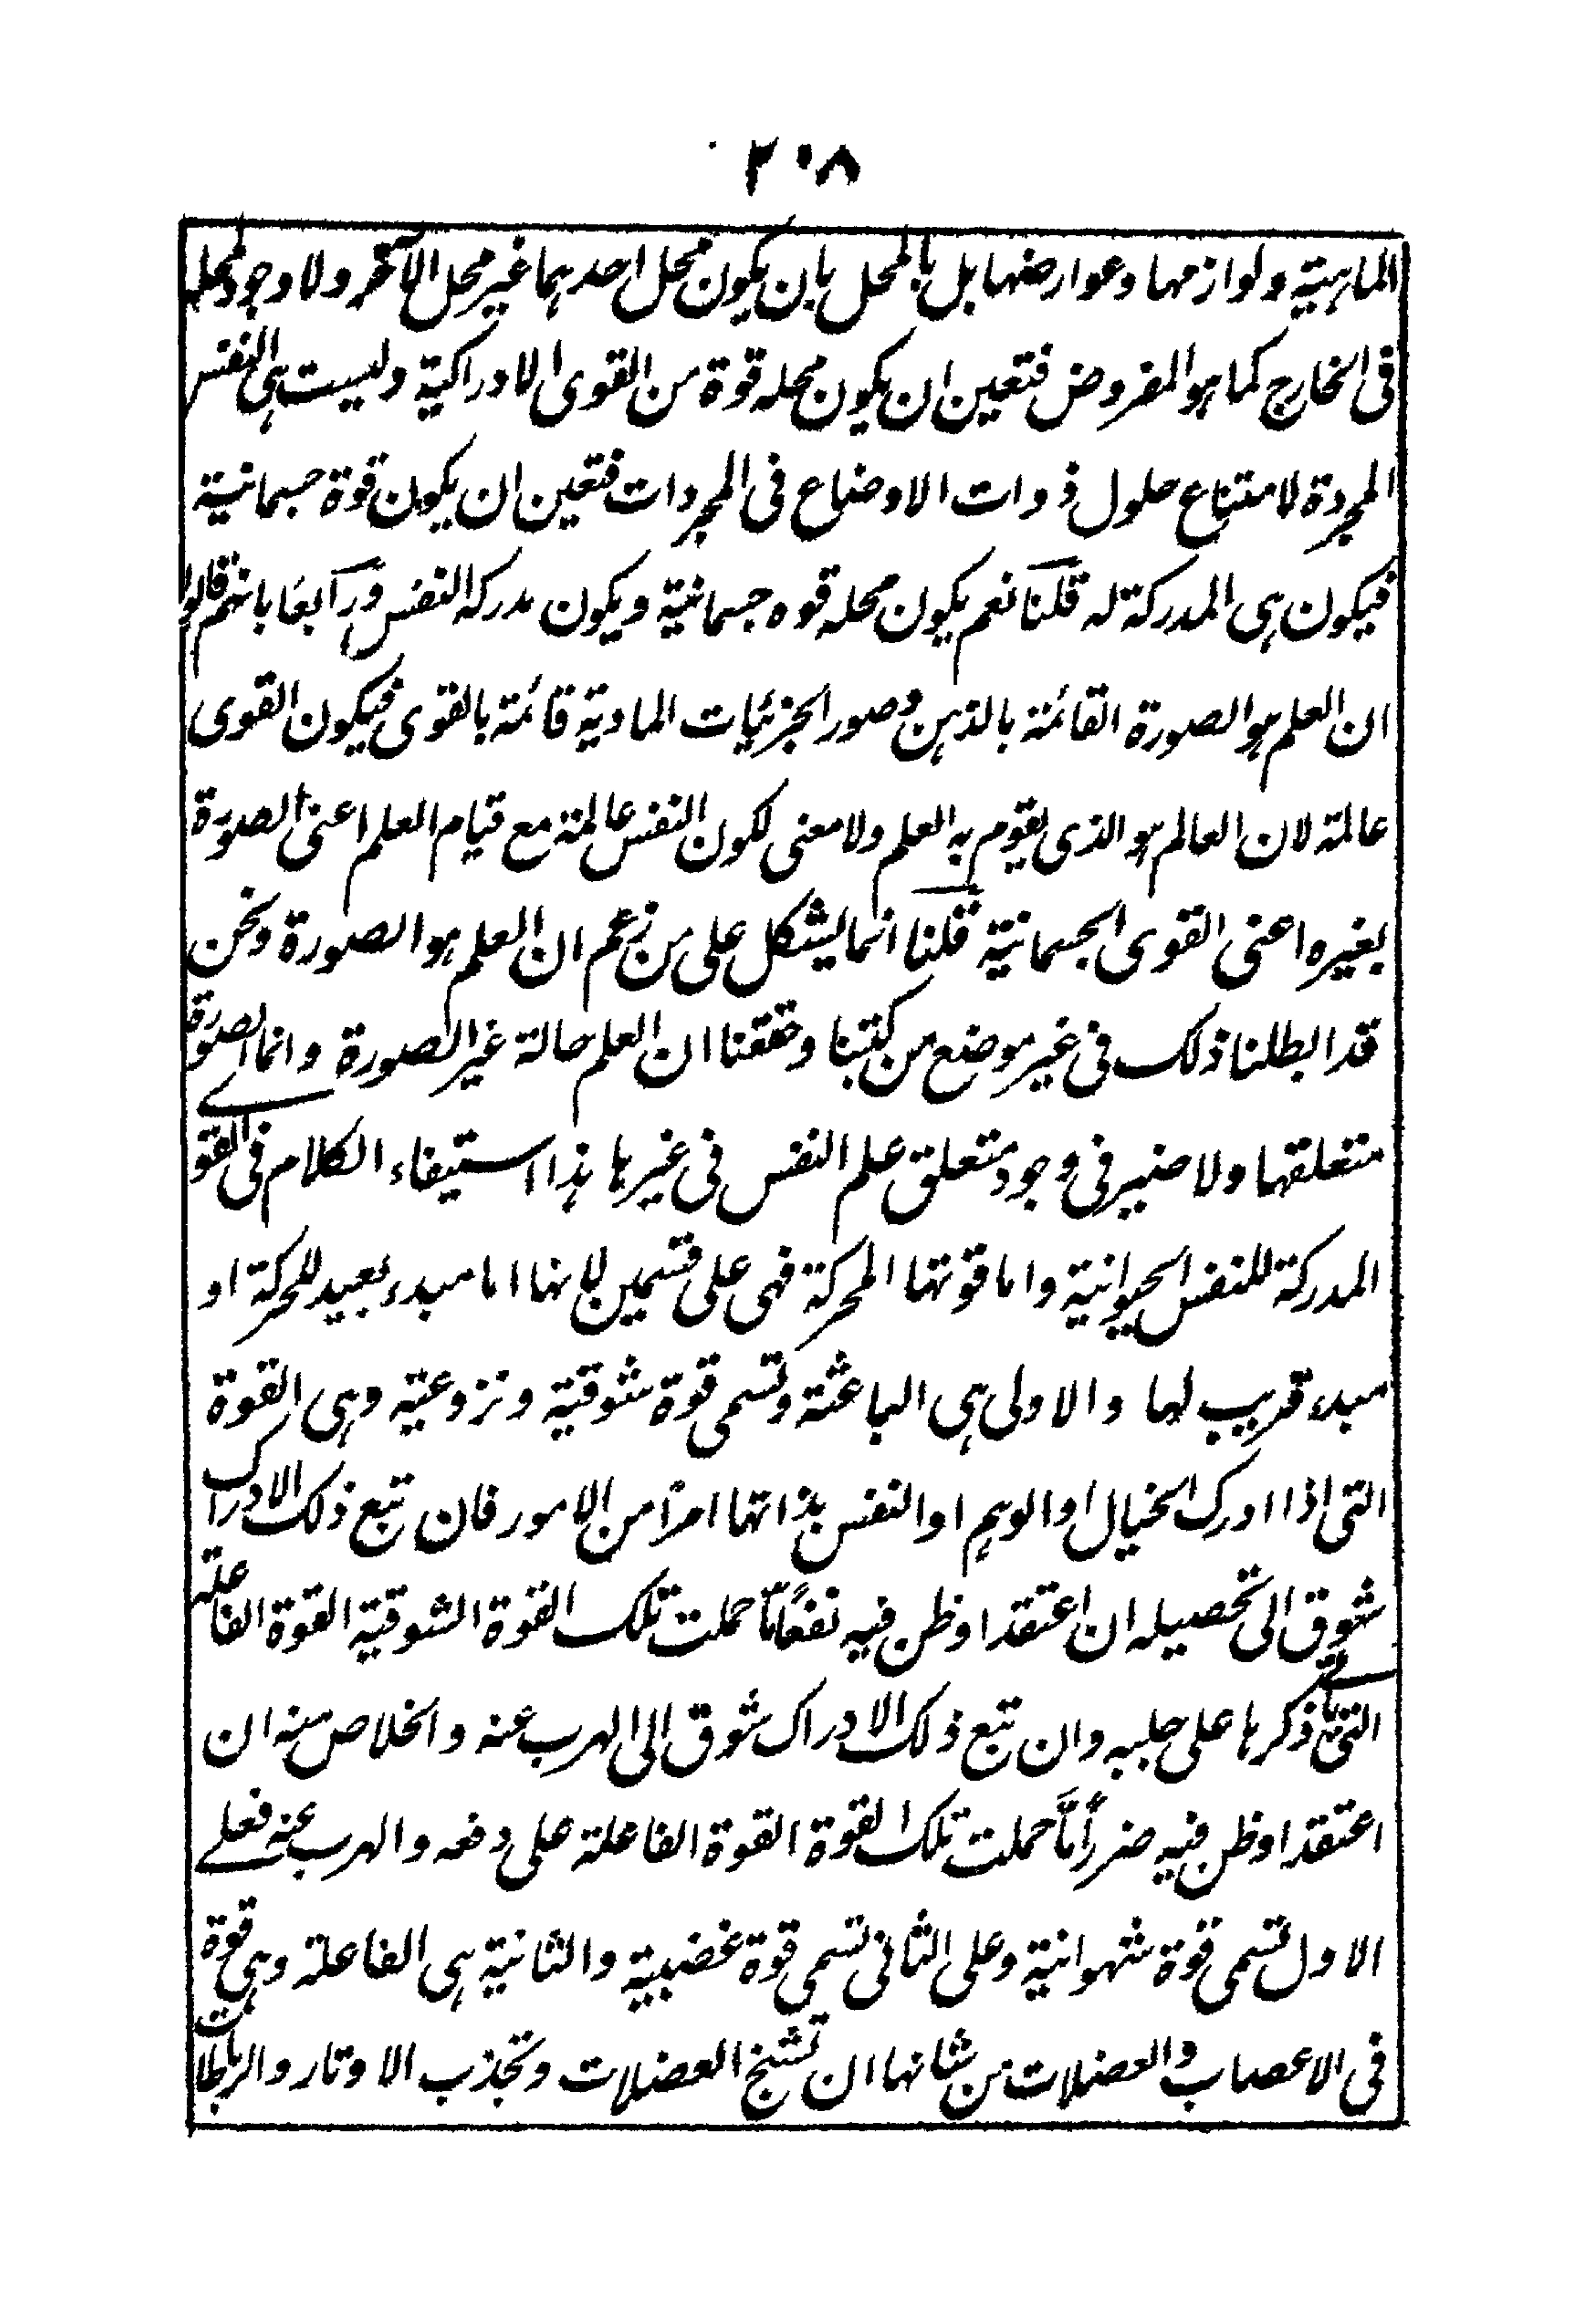 ٢٠٨
الماهية ولوازمها وعوارضها بل بالمحل بان يكون محل احدهما غير محل الآخر ولا وجود لمحلها
فى الخارج كما هو المفروض فتعين ان يكون محله قوة من القوى الادراكية وليست هى النفس
المجردة لامتناع حلول ذوات الاوضاع فى المجردات فتعين ان يكون قوة جسمانية
فيكون هى المدركة له قلنا نعم يكون محله قوه جسمانية ويكون مدركه النفس ورابعا بانهم قالوا
ان العلم هو الصورة القائمة بالذهن وصور الجزئيات المادية قائمة بالقوى فيكون القوى
عالمة لان العالم هو الذى يقوم به العلم ولا معنى لكون النفس عالمة مع قيام العلم اعنى الصورة
بغيره اعنى القوى الجسمانية قلنا انما يشكل على من زعم ان العلم هو الصورة ونحن
قد ابطلنا ذلك فى غير موضع من كتبنا وحققنا ان العلم حالة غير الصورة وانما الصورة
متعلقها ولا ضير فى وجود متعلق علم النفس فى غيرها هذا استيفاء الكلام فى القوى
المدركة للنفس الحيوانية واما قوتها المحركة فهى على قسمين لانها اما مبدء بعيد للحركة او
مبدء قريب لها والاولى هى الباعثة وتسمى قوة شوقية ونزوعية وهى القوة
التى اذا ادرك الخيال او الوهم او النفس بذاتها امرا من الامور فان تبع ذلك الادراك
شوق الى تحصيله ان اعتقد او ظن فيه نفعًا مّا حملت تلك القوة الشوقية القوة الفاعلة
التى ياتى ذكرها على جلبه وان تبع ذلك الادراك شوق الى الهرب عنه والخلاص منه ان
اعتقد او ظن فيه ضرراً مّا حملت تلك القوة القوة الفاعلة على دفعه والهرب عنه فعلى
الاول تسمى قوة شهوانية وعلى الثانى تسمى قوة غضبية والثانية هى الفاعلة وهى قوة
فى الاعصاب والعضلات من شانها ان تشنج العضلات وتجذب الاوتار والرباطات